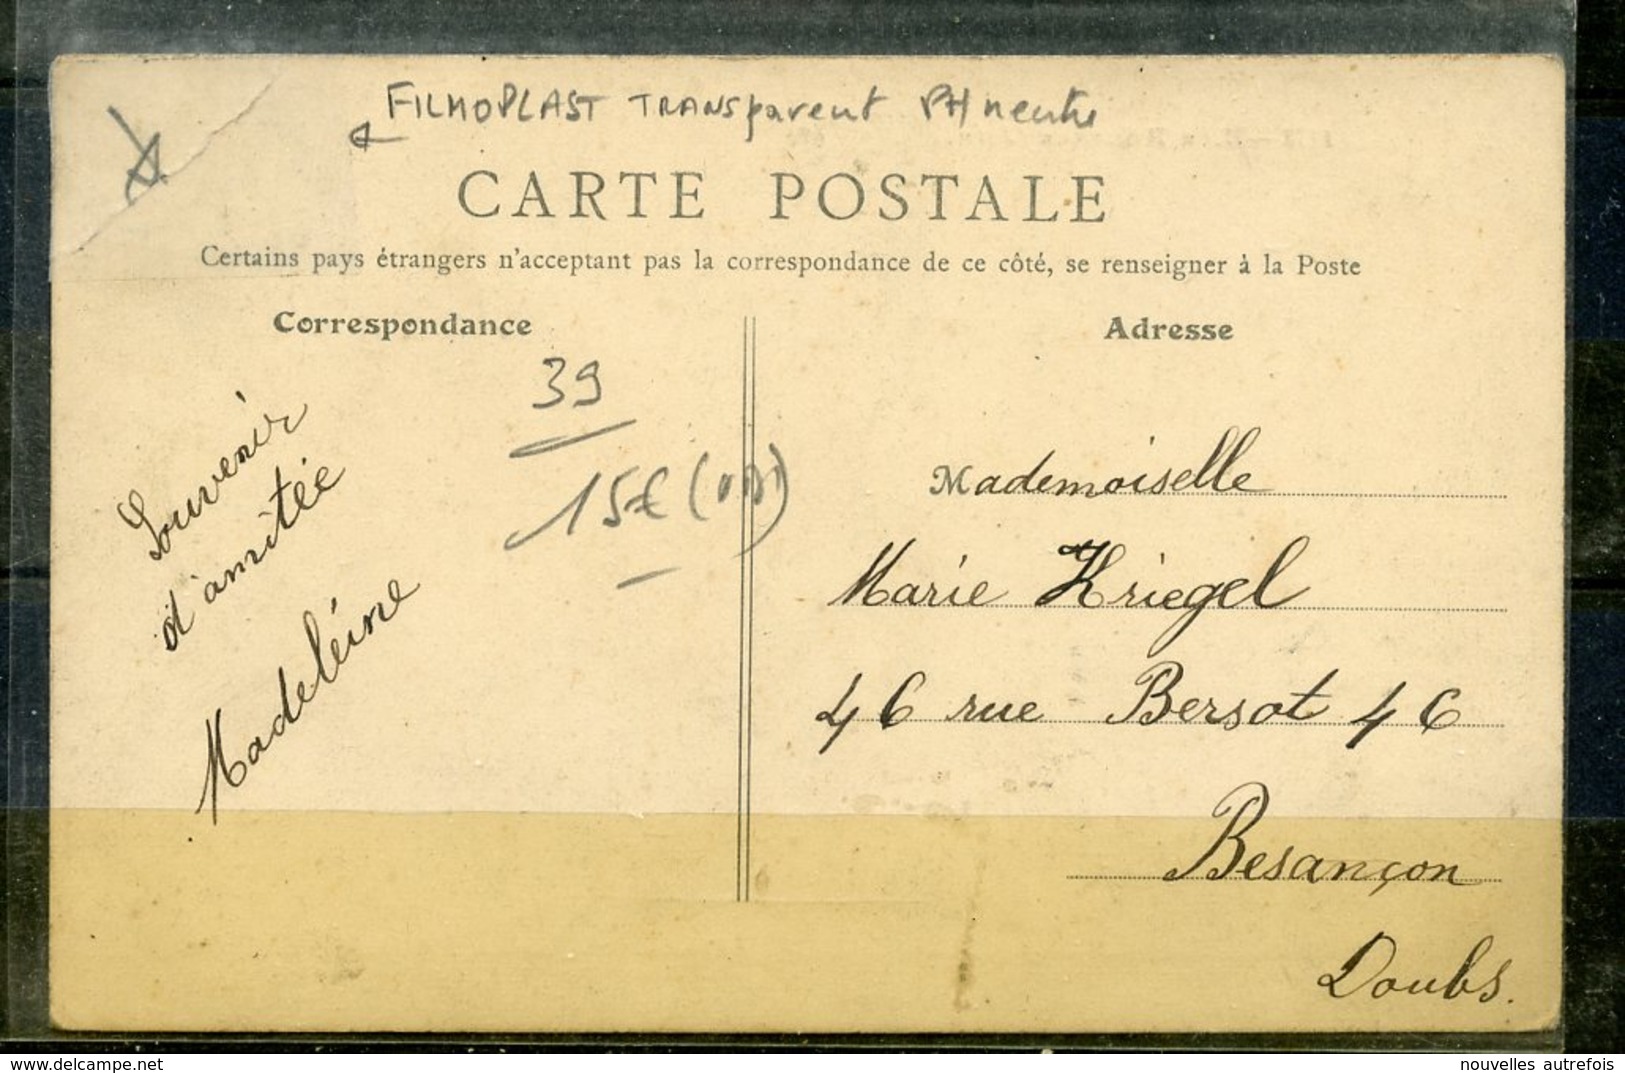 FILMOPLAST TRANSparent PH neutre
CARTE POSTALE
Certains pays étrangers n'acceptant pas la correspondance de ce côté, se renseigner à la Poste
Correspondance
Adresse
39
15€
Souvenir
d'amitée
Madeléine
Mademoiselle
Marie Kriegel
46 rue Bersot 46
Besançon
Doubs.
nouvelles autrefois